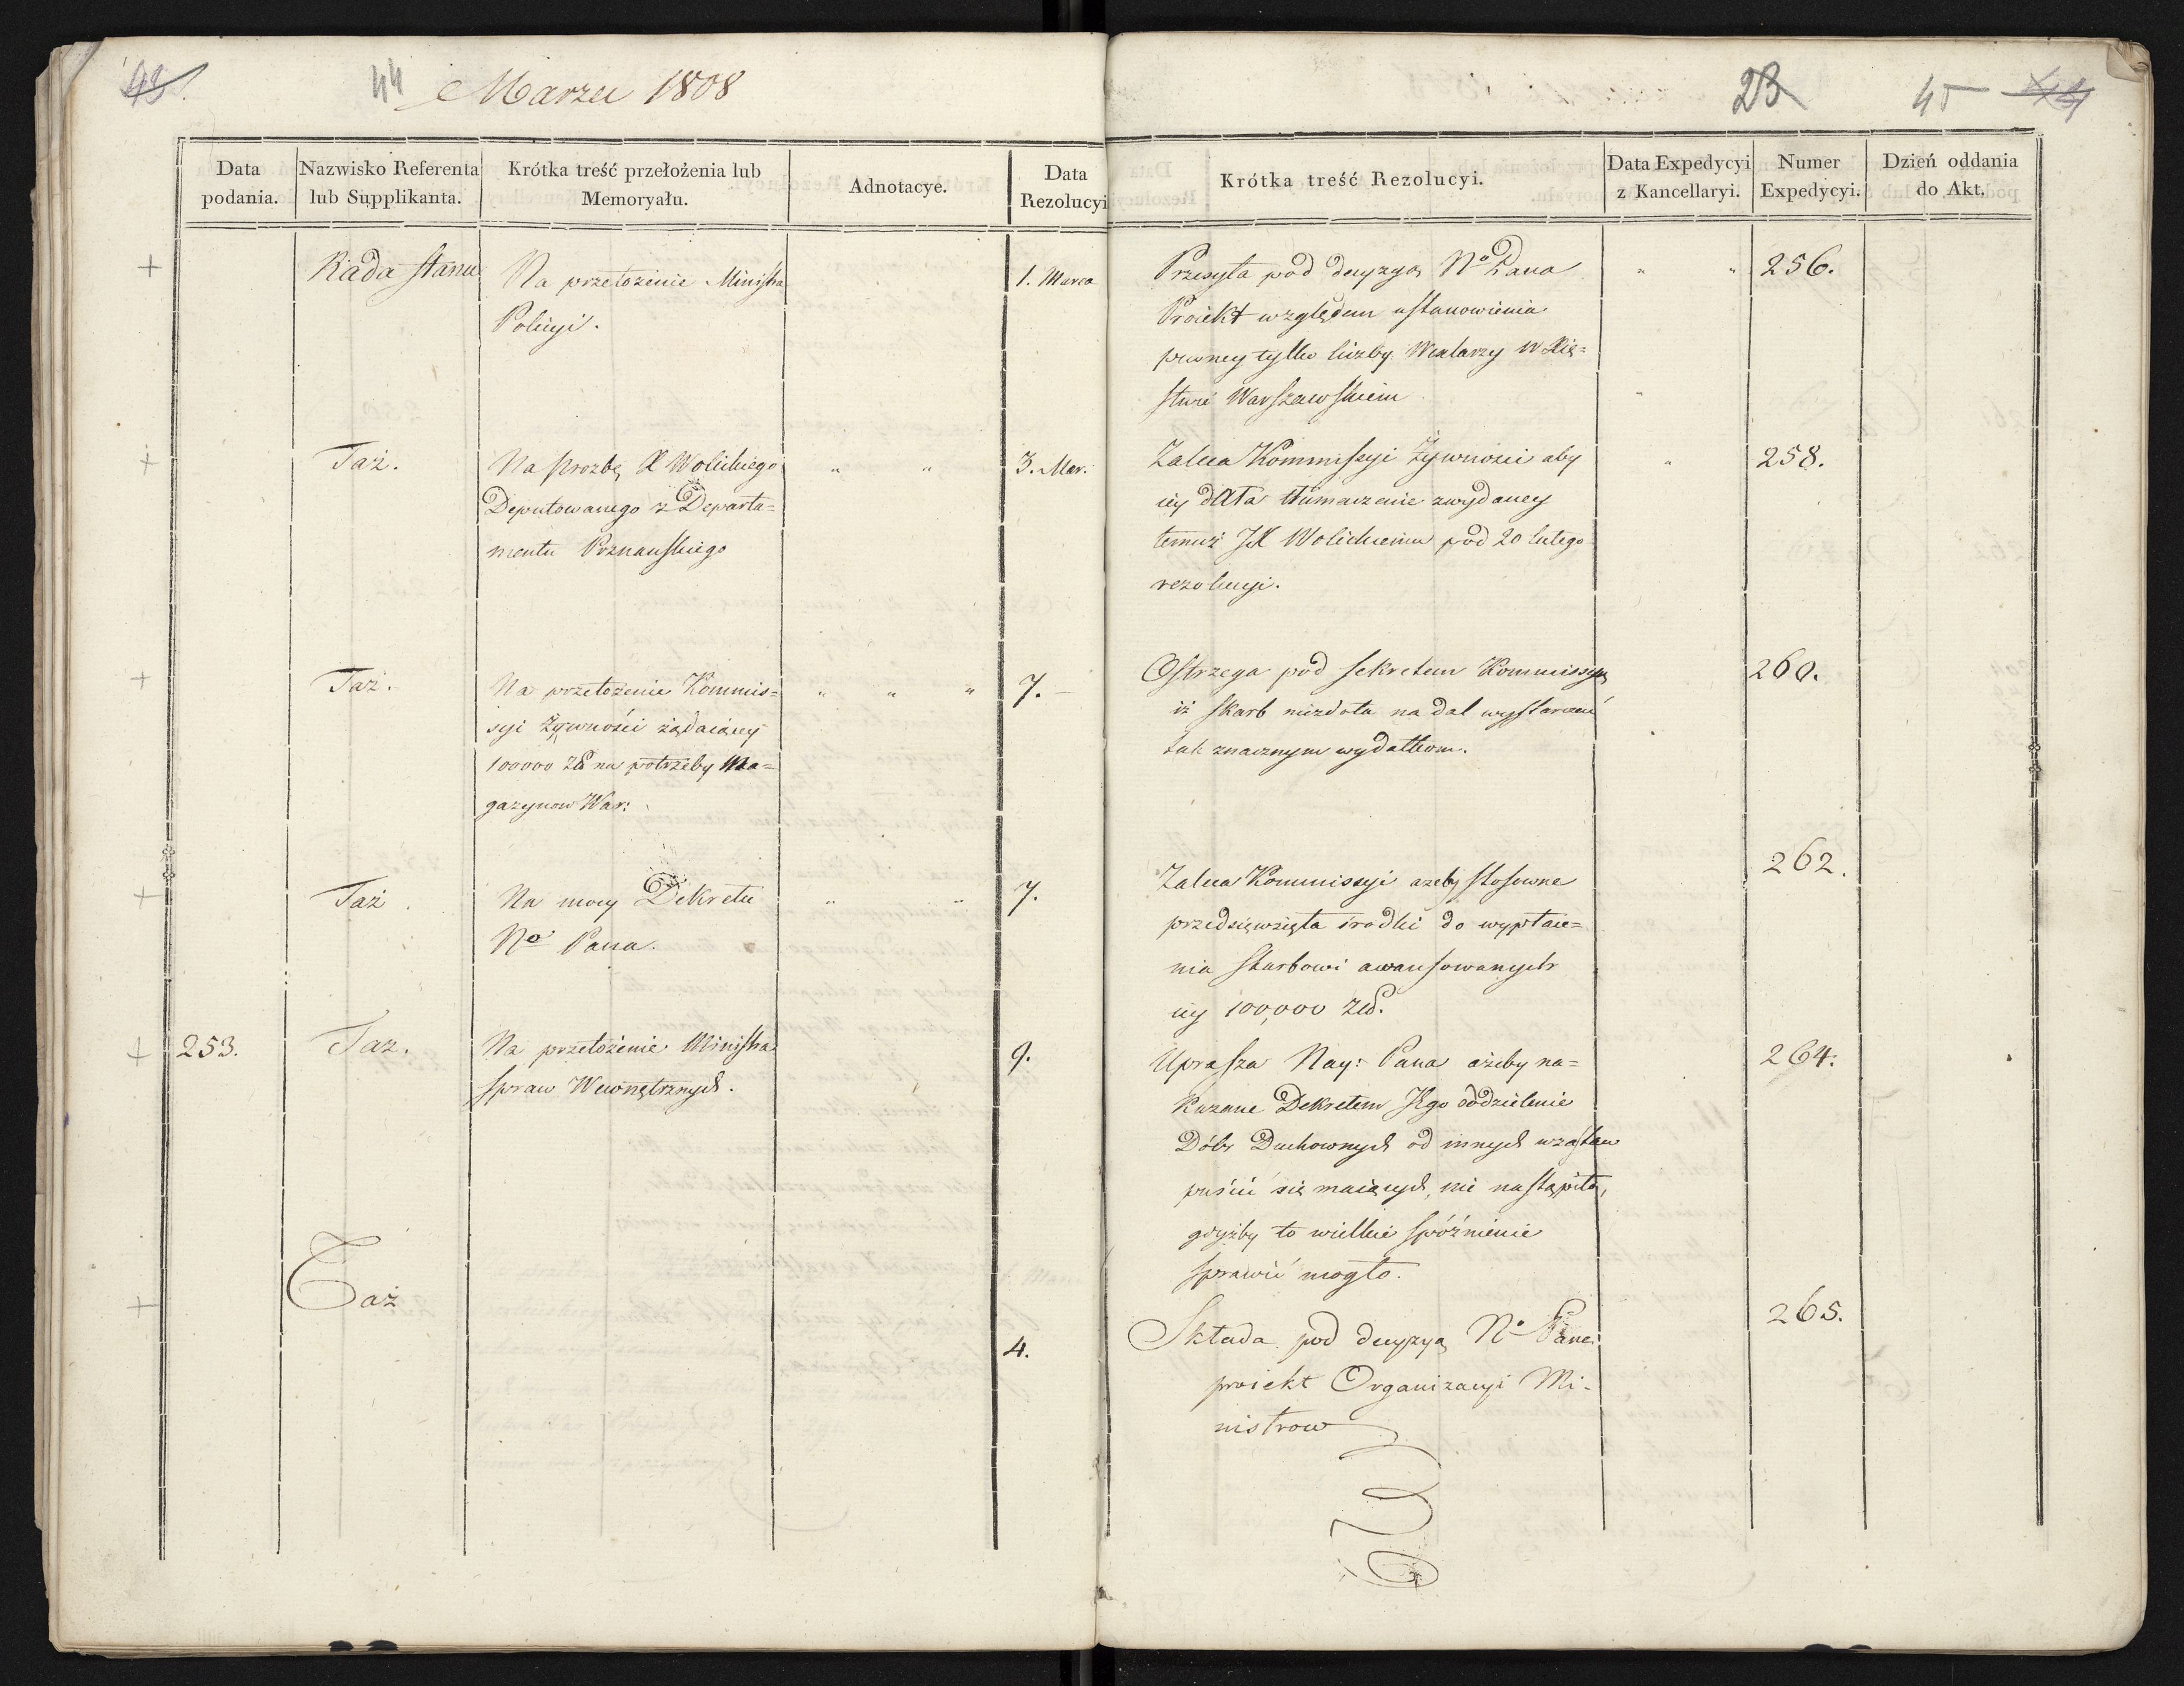 43.
44 Marzec 1808
23 45 44
Data podania.
Nazwisko Referenta lub Supplikanta.
Krótka treść przełożenia lub Memoryału.
Adnotacye.
Data Rezolucyi
Krótka treść Rezolucyi.
Data Expedycyi z Kancellaryi.
Numer Expedycyi.
Dzień oddania do Akt.
+ Rada stanu
Na przełożenie Ministra
Policyi.
1. Marca
Przesyła pod decyzyą No Pana
Proiekt względem ustanowienia
pewney tylko liczby Wexlarzy w Xię=
stwie Warszawskiem
" " 256.
+ Taż.
Na prozbę X Wolickiego
Deputowanego z Departa=
mentu Poznanskiego
" "
3. Mar.
Zaleca Kommissyi Żywnosci aby
iey dała tłumaczenie zwydaney
temuż JX Wolickiemu pod 20 lutego
rezolucyi.
" 258.
+ Taż.
Na przełożenie Kommis=
syi Żywności żądaiącey
100000 Zł na potrzeby Ma=
gazynow War:
" " "
7. –
Ostrzega pod sekretem Kommissyą
iż skarb niezdoła na dal wystarczać
tak znacznym wydatkom.
260.
+ Taż.
Na mocy Dekretu
No Pana.
" "
7.
Zaleca Kommissyi ażeby stosowne
przedsięwzięła środki do wypłace=
nia skarbowi awansowanych
iey 100,000 Złł.
262.
+ 253. Taż.
Na przełożenie Ministra
spraw Wewnętrznych.
9.
Uprasza Nay: Pana ażeby na=
kazane Dekretem Jego oddzielenie
Dóbr Duchownych od innych wzastaw
puścić się maiących, nie nastąpiło,
gdyżby to wielkie spóźnienie
sprawić mogło.
264.
+ Taż
4.
Składa pod decyzyą No Pana
proiekt Organizacyi Mi-
nistrow
265.